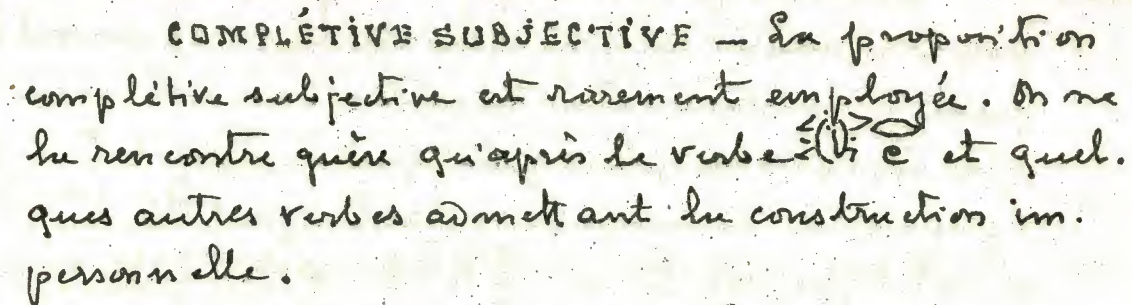 COMPLÉTIVE SUBJECTIVE — La proposition
complétive subjective est rarement employée. On ne
la rencontre guère qu'après le verbe et quel.
ques autres verbes admettant la construction im.
personnelle.